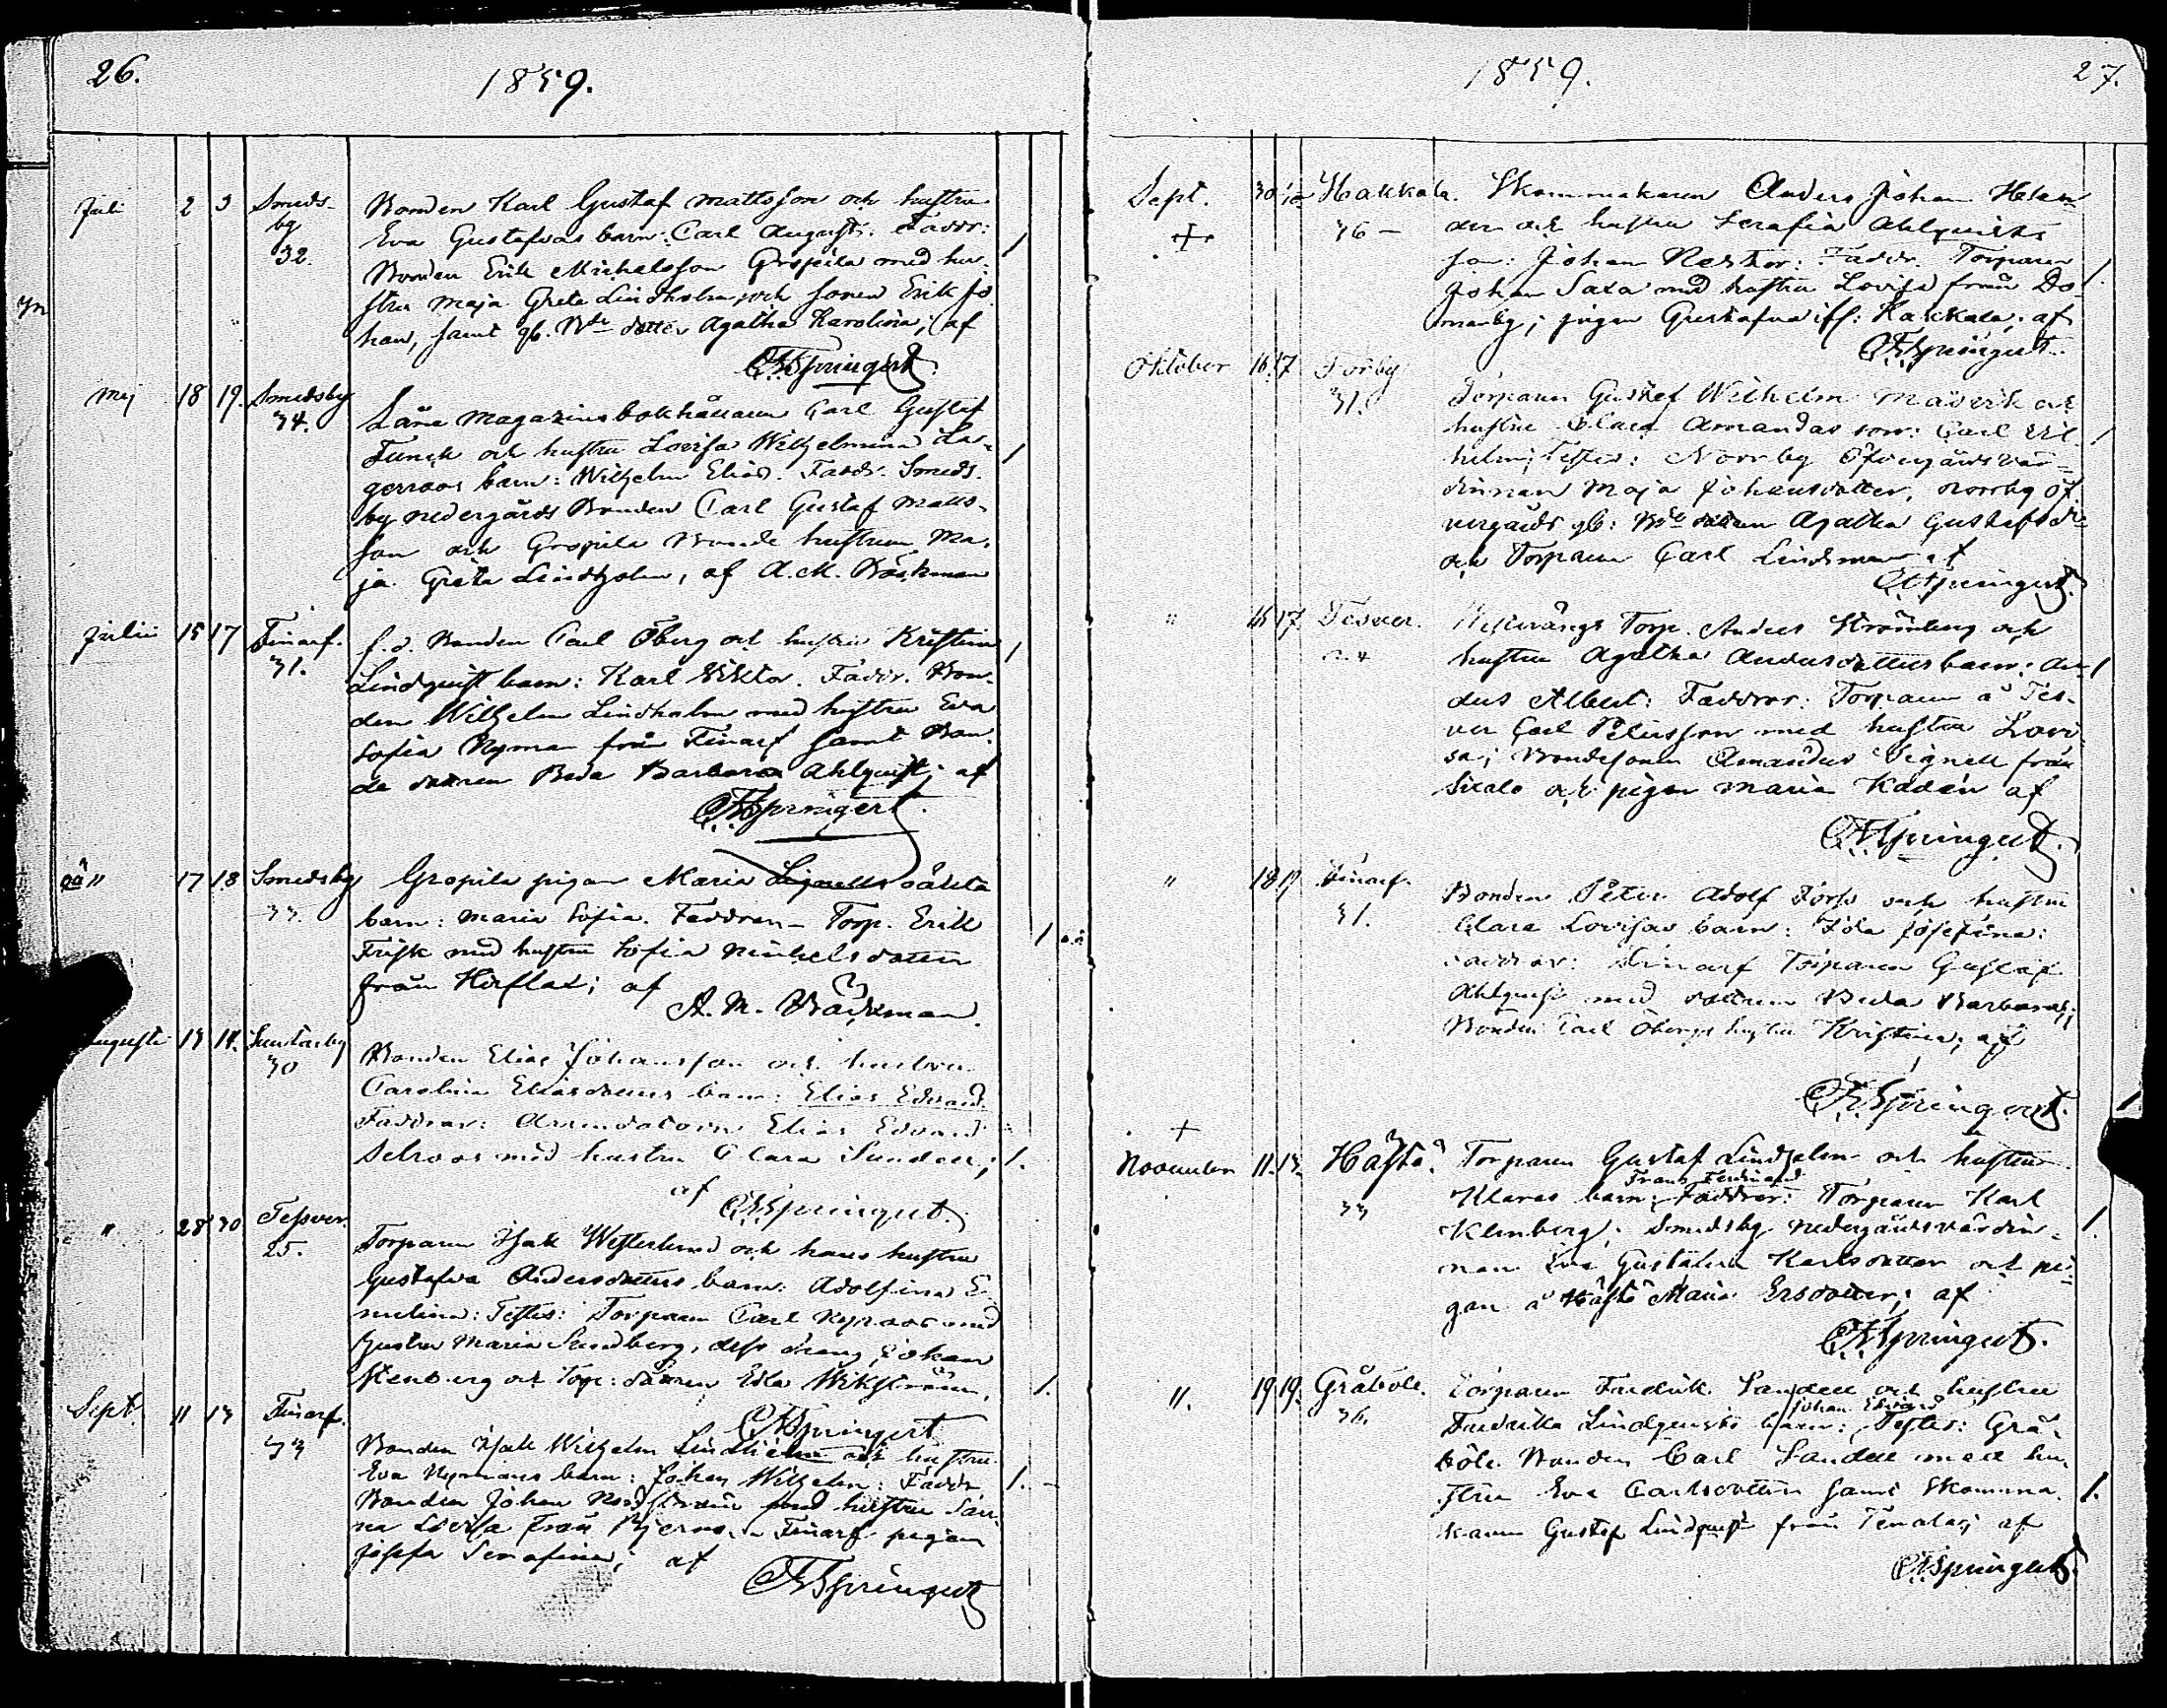 26.
1859.
Juli 2 3 Smeds- Bonden Karl Gustaf Mattsson och hustru
by Eva Gustafvas barn: Carl August. Faddr:
32. Bonden Erik Michelsson Gropila med hu- /
stru Maja Greta Lindholm, och sonen Erik Jo
han, samt gb. dotter Agatha Karolina; af
Springert.
Maj 18 19. Smedsby
34. Låne magazins bokhållaren Carl Gustaf
Funck och hustru Lovisa Wilhelmina La- /
gerroos barn: Wilhelm Elias. Faddr. Smeds-
by nedergårds Bonden Carl Gustaf Matts-
son och Gropila Bonde hustrun Ma-
ja Greta Lindholm, af A. M. Bäckman
Julii 15 17 Finarf. f.d. Bonden Carl Öberg och hustru Kristina /
31. Lindquist barn: Karl Viktor. Faddr. Bon-
den Wilhelm Lindholm med hustru Eva
Sofia Nyman från Finarf samt Bon-
de dottren Beda Barbara Ahlquist; af
Springert.
oä " 17 18 Smedsby Gropila pigan Maria Lignells oäkta
33. barn: Maria Sofia. Faddren- Torp. Erik
Frisk med hustru Sofia Michelsdotter / o.ä
från Hirflax; af
A. M. Bäckman.
Augusti 13 14. Sunnarby
30 Bonden Elias Johansson och hustru
Carolina Eliasdotters barn: Elias Edvard.
Faddrar: Arrendatorn Elias Edvard
Selroos med hustru Clara Sundell; /.
af
Springert.
" 28 30 Tessver.
25. Torparen Isak Westerlund och hans hustru
Gustafva Andersdotters barn: Adolfina E-
melina: Testes: Torparen Carl Nyroos med
hustru Maria Sundberg, dess dräng Johan
Stenberg och Torp: dottren Eda Wikström, /.
Springert
Sept. 11 13 Finarf.
33 Bonden Isak Wilhelm Lindholm och hustru
Eva Nymans barn: Johan Wilhelm: Faddr. /.
Bonden Johan Nordström med hustru San-
na Lovisa från Bjerno. Finarf pigan
Josefa Serafina; af
Springert
1859.
27.
Sept. 30 1/10 Hakkala. Skomakaren Anders Johan Helan
+ 36 der och hustru Serafia Ahlquists
son: Johan Nestor: Faddr. Torparen
Johan Saxa med hustru Lovisa från Do- /.
marby; pigan Gustafva if: Hakkala; af
Springert.
Oktober 16 17 Förby
31. Torparen Gustaf Wilhelm och
hustru Clara Amandas son: Carl Vil- /
helm; Testes: Norrby Öfvergårds vär-
dinnan Maja Johansdotter, Norrby öf-
vergårds gb: dottren Agatha Gustafsdr
och Torparen Carl Lindsman af
Springert.
" 16 17 Tesver. Torp. Anders Strömberg och
24 hustru Agatha Andersdotters barn: An- /
ders Albert: Faddrar: Torparen å Tes-
ver Carl Petersson med hustru Lovi-
sa; Bondesonen Amandus Signell från
och pigan Maria af
Springert.
" 18 19 Finarf.
31. Bonden Peter Adolf Fors och hustru
Clara Lovisas barn: Ida Josefina:
Faddrar: Finarf Torparen Gustaf
Ahlquist med dottren Beda Barbara;
Bonden Carl Öbergs hustru Kristina; af
Springert. /
+
November 11. 13. Håstö. Torparen Gustaf Lindholm och hustru
Frans Ferdinand
33 Klaras barn: Faddrar: Torparen Karl
Klenberg; Smedsby nedergårdsvärdin- /.
nan Eva Gustafva Karlsdotter och pi-
gan å Håstö Maria Ersdotter; af
Springert.
". 19 19. Gråböle. Torparen Fredrik Sandell och hustru
Johan Edvard
36. Fredrika Lindquists barn: Testes: Grå-
böle Bonden Carl Sandell med hu-
stru Eva Carlsdotter samt Skoma- /.
karen Gustaf Lindquist från Tenala; af
Springert.